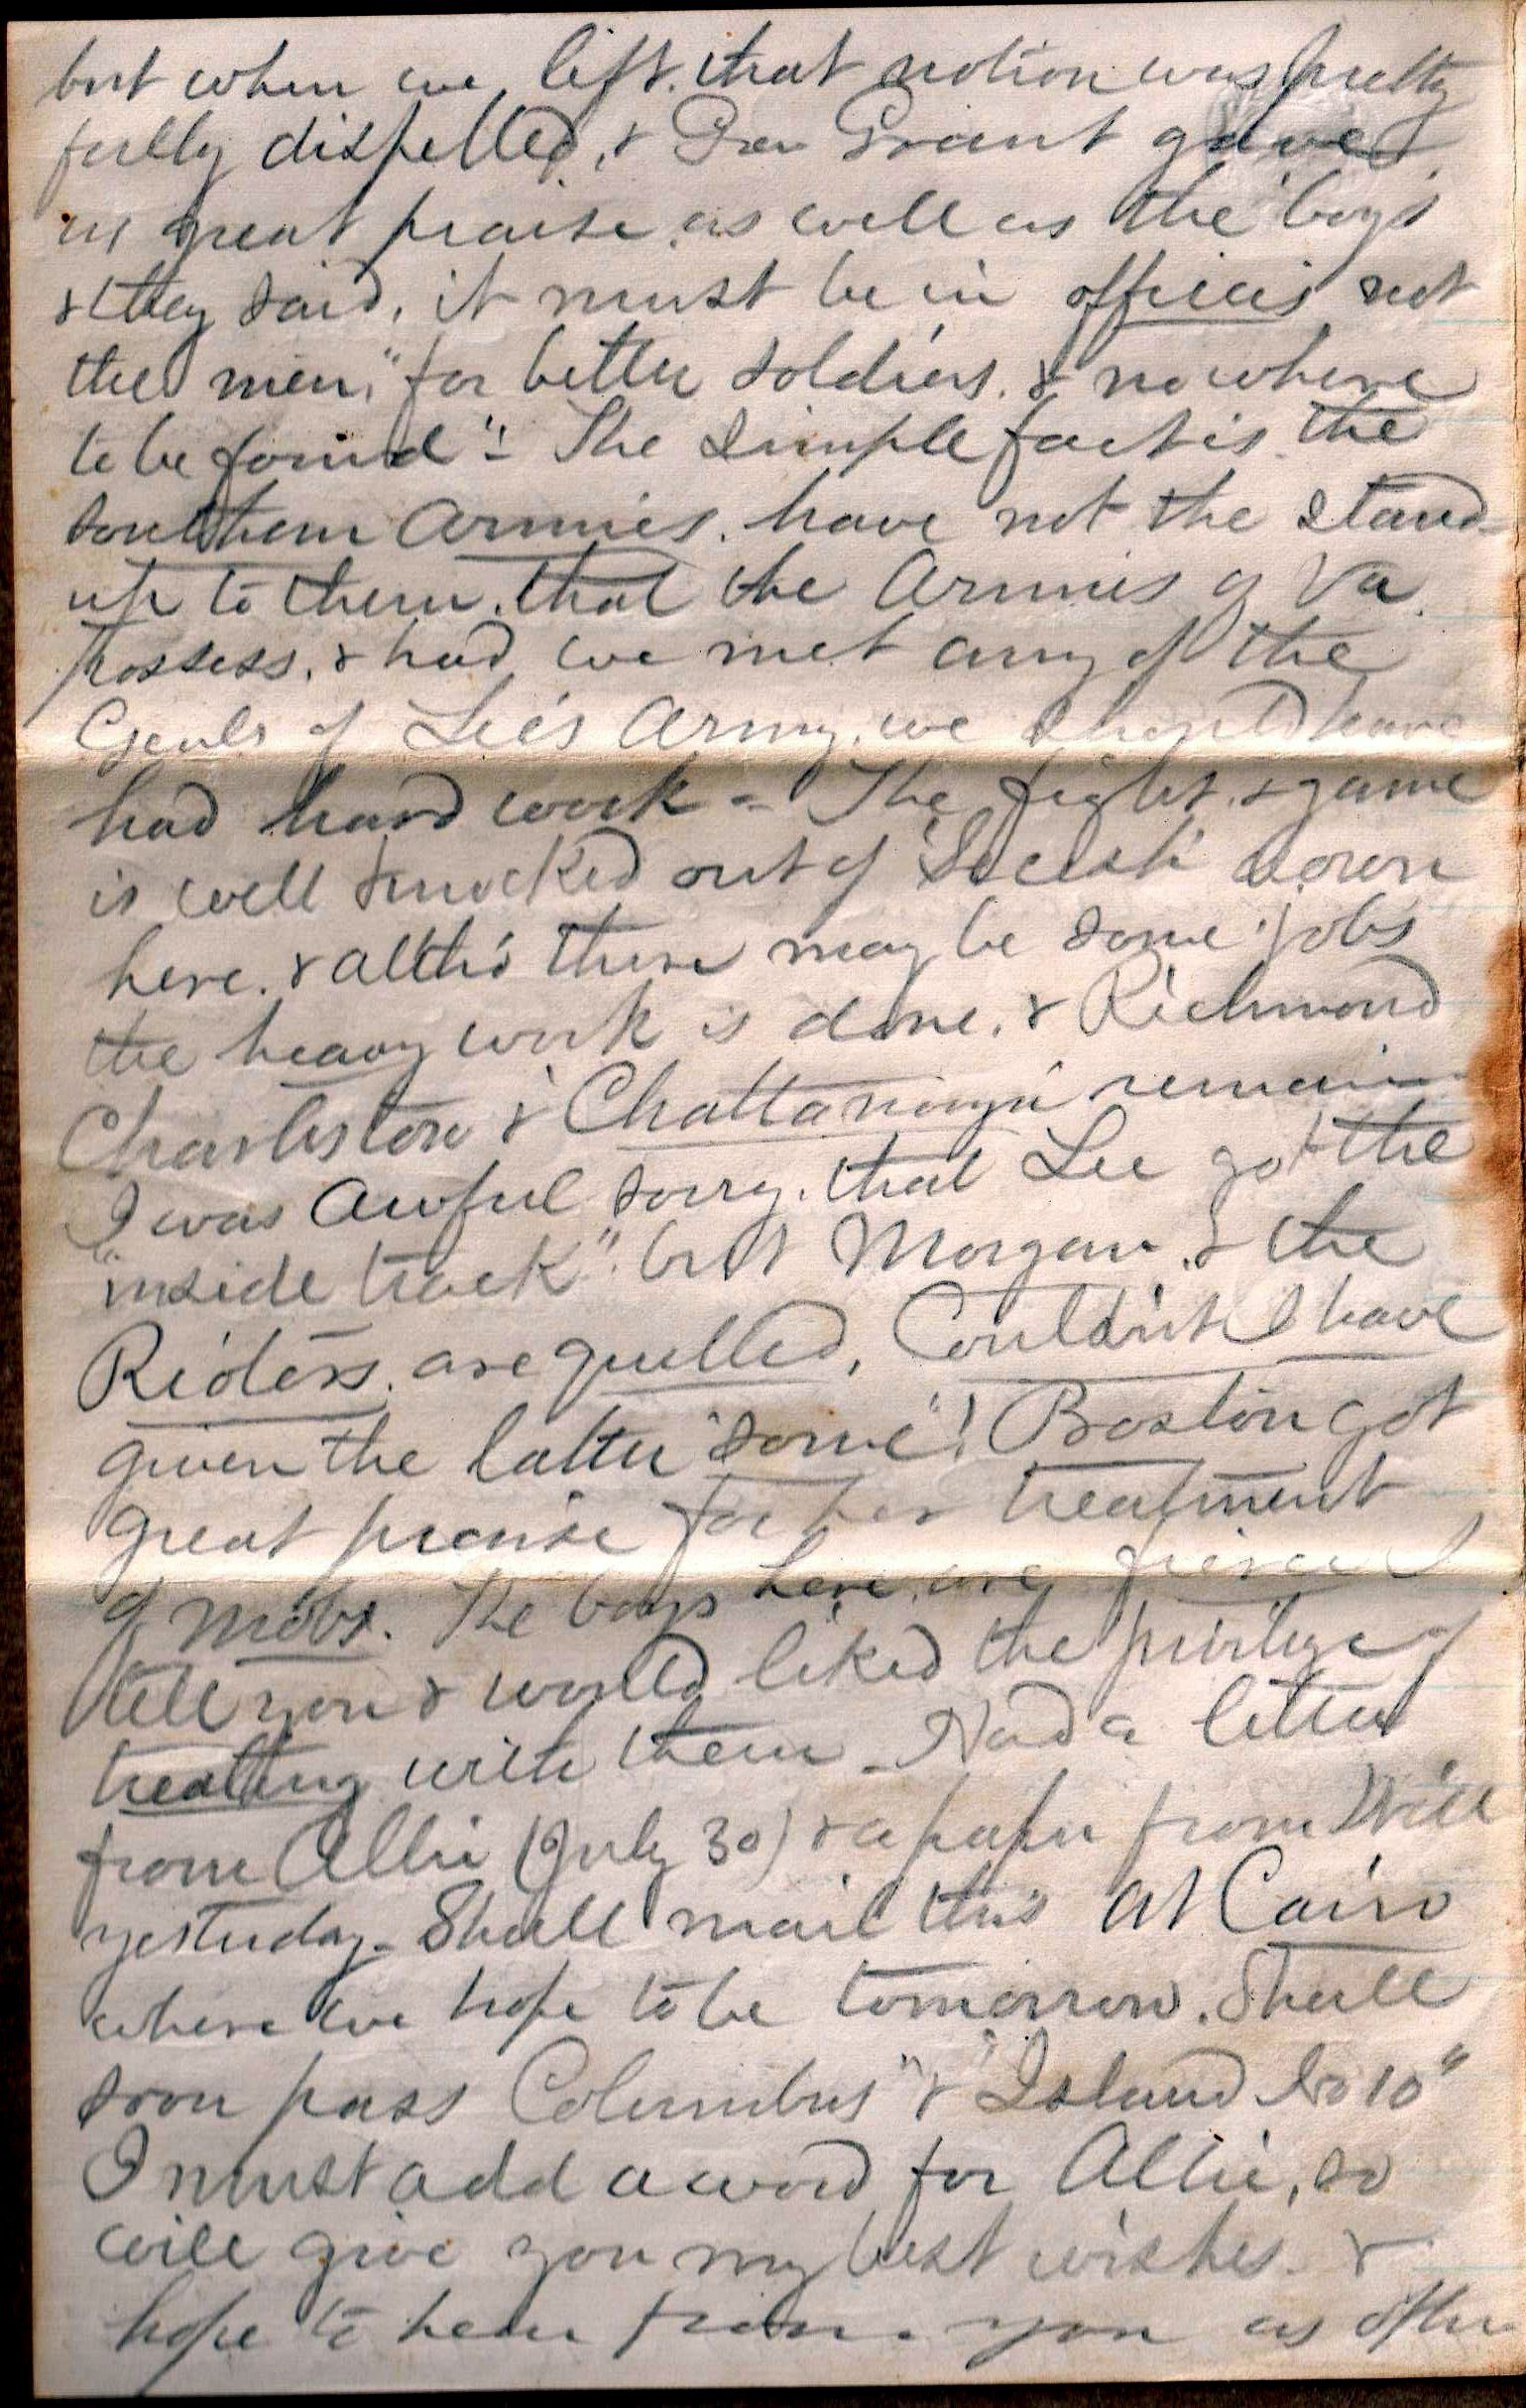 but when we left. that notion was pretty
fully dispelled, & Gen Grant gave
us great praise, as well as the boys
& they said, it must be in officers not
the men, "for better soldiers. & nowhere
to be found" - The simple fact is. the
Southern Armies. have not the stand-
up to them. that the Armies of Va.
possess. & had we met any of the
Genls of Lee's Army. we should have
had hard work - The fight. & game
is well knocked out of "Secesh" down
here. & altho' there may be some jobs
the heavy work is done. & Richmond
Charleston & Chattanooga remain
I was Awful sorry. that Lee got the
"inside track". but Morgan. & the
Rioters. are quelled, Couldn't I have
given the latter "some"! Boston got
great praise for her treatment
of mobs. The boys here are fierce I
tell you & would liked the privilege of
treating with them - Had a letter
from Allie (July 30) & a paper from Will
yesterday - Shall mail this at Cairo
where we hope to be tomorrow. Shall
soon pass Columbus" & "Island No 10"
I must add a word for Allie, so
will give you my best wishes. &
hope to hear from you as often